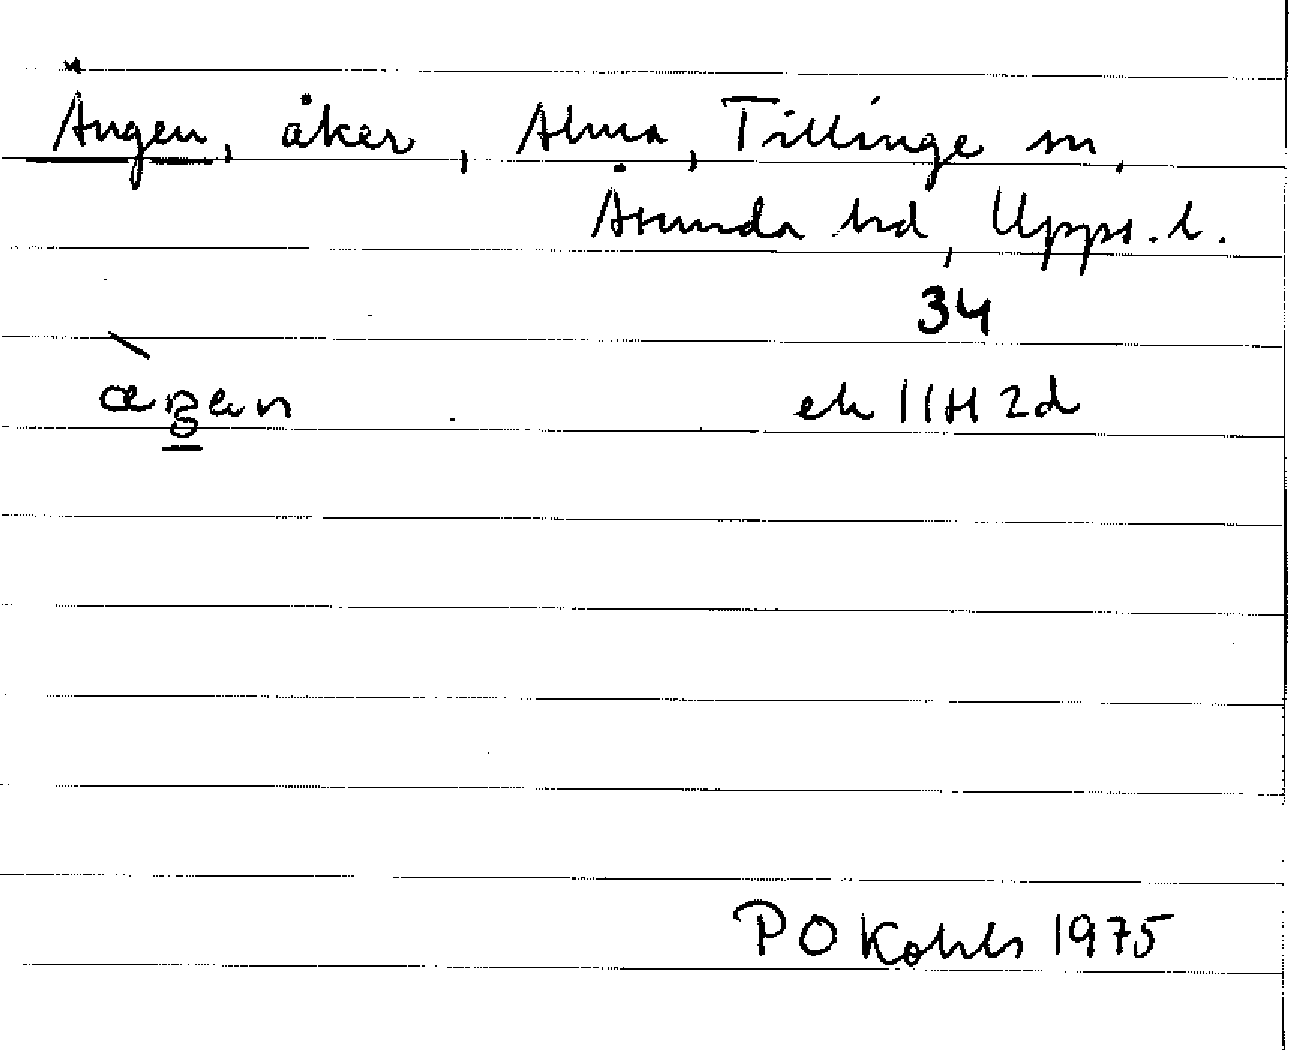 Ängen, åker, Alma, Tillinge sn,
Åsunda hd, Upps. l.
34
ek 11H 2d
P O Kohls 1975